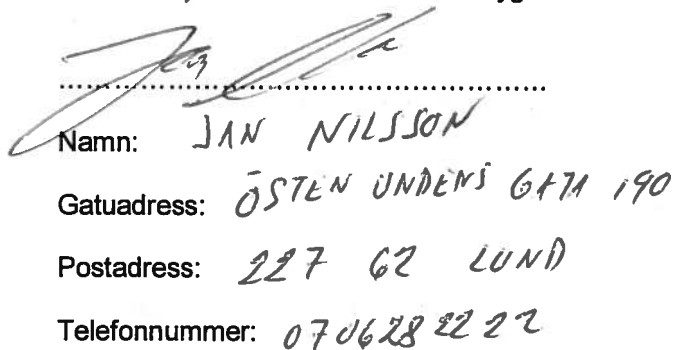 Namn: JAN NILSSON
Gatuadress: ÖSTEN UNDENS GATA 190
Postadress: 227 62 LUND
Telefonnummer: 0706282222